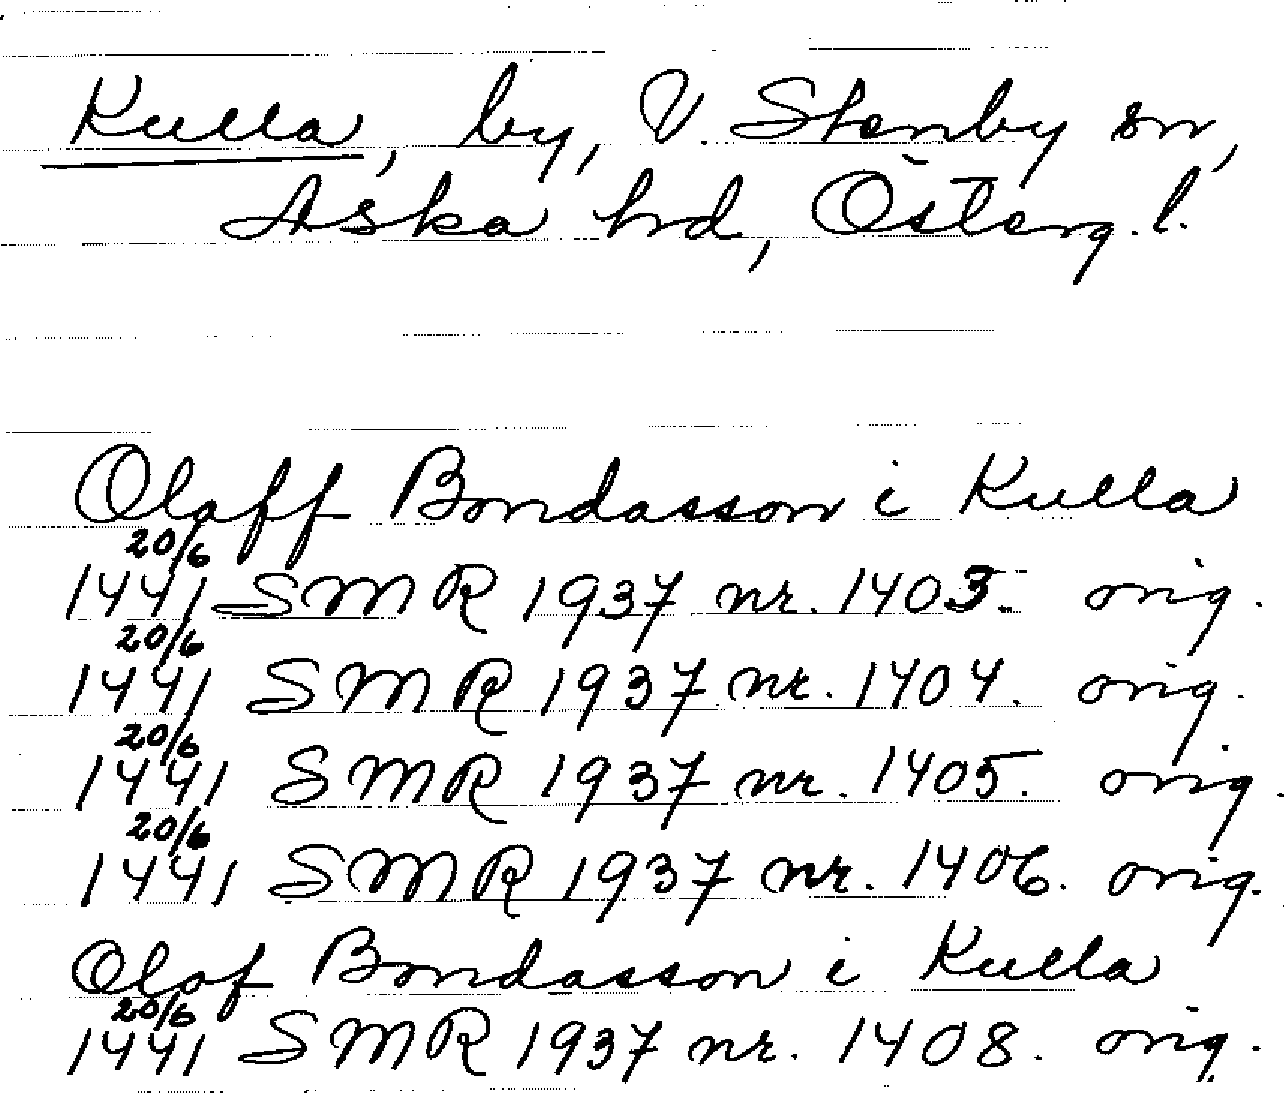 Kulla, by, V. Stenby sn,
Aska hd, Österg. l.
Olaff Bondasson i Kulla
20/6
1441 SMR 1937 nr. 1403. orig.
20/6
1441 SMR 1937 nr. 1404. orig.
20/6
1441 SMR 1937 nr. 1405. orig.
20/6
1441 SMR 1937 nr. 1406. orig.
Olof Bondasson i Kulla
20/6
1441 SMR 1937 nr. 1408. orig.